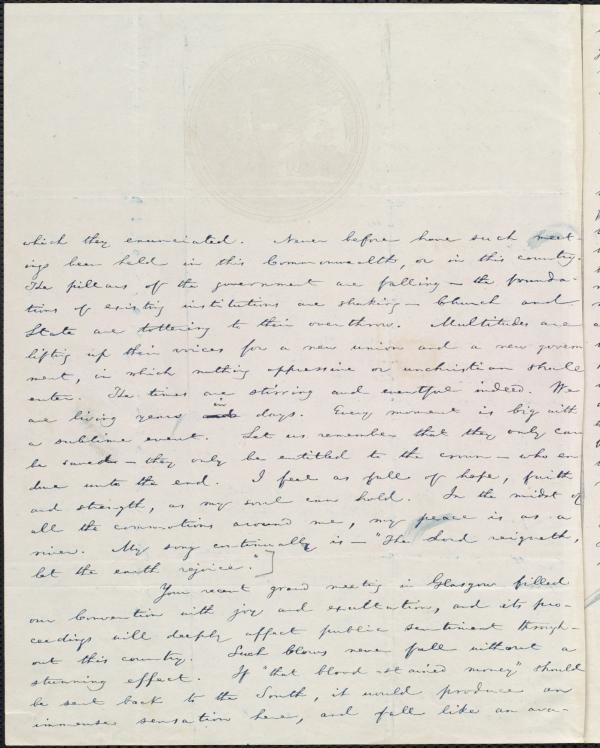 which they enunciated. Never before have such meet-
ings been held in this Commonwealth, or in this country.
The pillars of the government are falling — the founda-
tions of existing institutions are shaking — Church and
State are tottering to their overthrow. Multitudes are
lifting up their voices for a new union and a new govern
ment, in which nothing oppressive or unchristian shall
enter. The times are stirring and eventful indeed. We
are living years in days. Every moment is big with
a sublime event. Let us remember that they only can
be saved — they only be entitled to the crown — who en
dure unto the end. I feel as full of hope, faith
and strength, as my soul can hold. In the midst of
all the commotions around me, my peace is as a
river. My song continually is — "The Lord reigneth,
let the earth rejoice."]
Your recent grand meeting in Glasgow filled
our Convention with joy and exultation, and its pro-
ceedings will deeply affect public sentiment through-
out this country. Such blows never fall without a
stunning effect. If "that blood-stained money" should
be sent back to the South, it would produce an
immense sensation here, and fall like an ava-